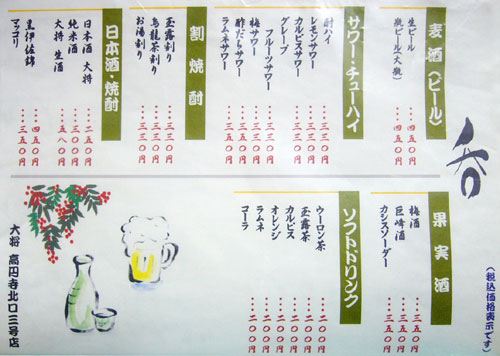 呑
麦酒(ビール)
生ビール ・・・四五〇円
瓶ビール(大瓶) ・・・五五〇円
サワー・チューハイ
酎ハイ ・・・三三〇円
レモンサワー ・・・三三〇円
カルピスサワー ・・・三三〇円
グレープ
フルーツサワー ・・・三三〇円
梅サワー ・・・三三〇円
酢だちサワー ・・・三三〇円
ラムネサワー ・・・三三〇円
割焼酎
玉露割り ・・・三三〇円
烏龍茶割り ・・・三三〇円
お湯割り ・・・三三〇円
日本酒・焼酎
日本酒 大将 ・・・二五〇円
純米酒 ・・・三五〇円
大将 生酒 ・・・五八〇円
黒伊佐錦 ・・・四五〇円
マッコリ ・・・三五〇円
果実酒
梅酒 ・・・三五〇円
巨峰酒 ・・・三五〇円
カシスソーダー ・・・三五〇円
ソフトドリンク
ウーロン茶 ・・・二〇〇円
玉露茶 ・・・二〇〇円
カルピス ・・・二〇〇円
オレンジ ・・・二〇〇円
ラムネ ・・・二〇〇円
コーラ ・・・二〇〇円
(税込価格表示です)
大将 高円寺北口三号店